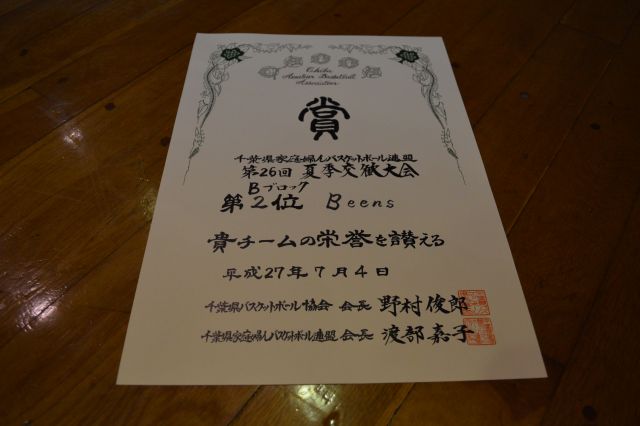 Chiba
Amateur Basketball
Association
賞
千葉県家庭婦人バスケットボール連盟
第26回 夏季交歓大会
Bブロック
第2位 Beens
貴チームの栄誉を讃える
平成27年7月4日
千葉県バスケットボール協会 会長 野村俊郎
千葉県家庭婦人バスケットボール連盟 会長 渡部嘉子